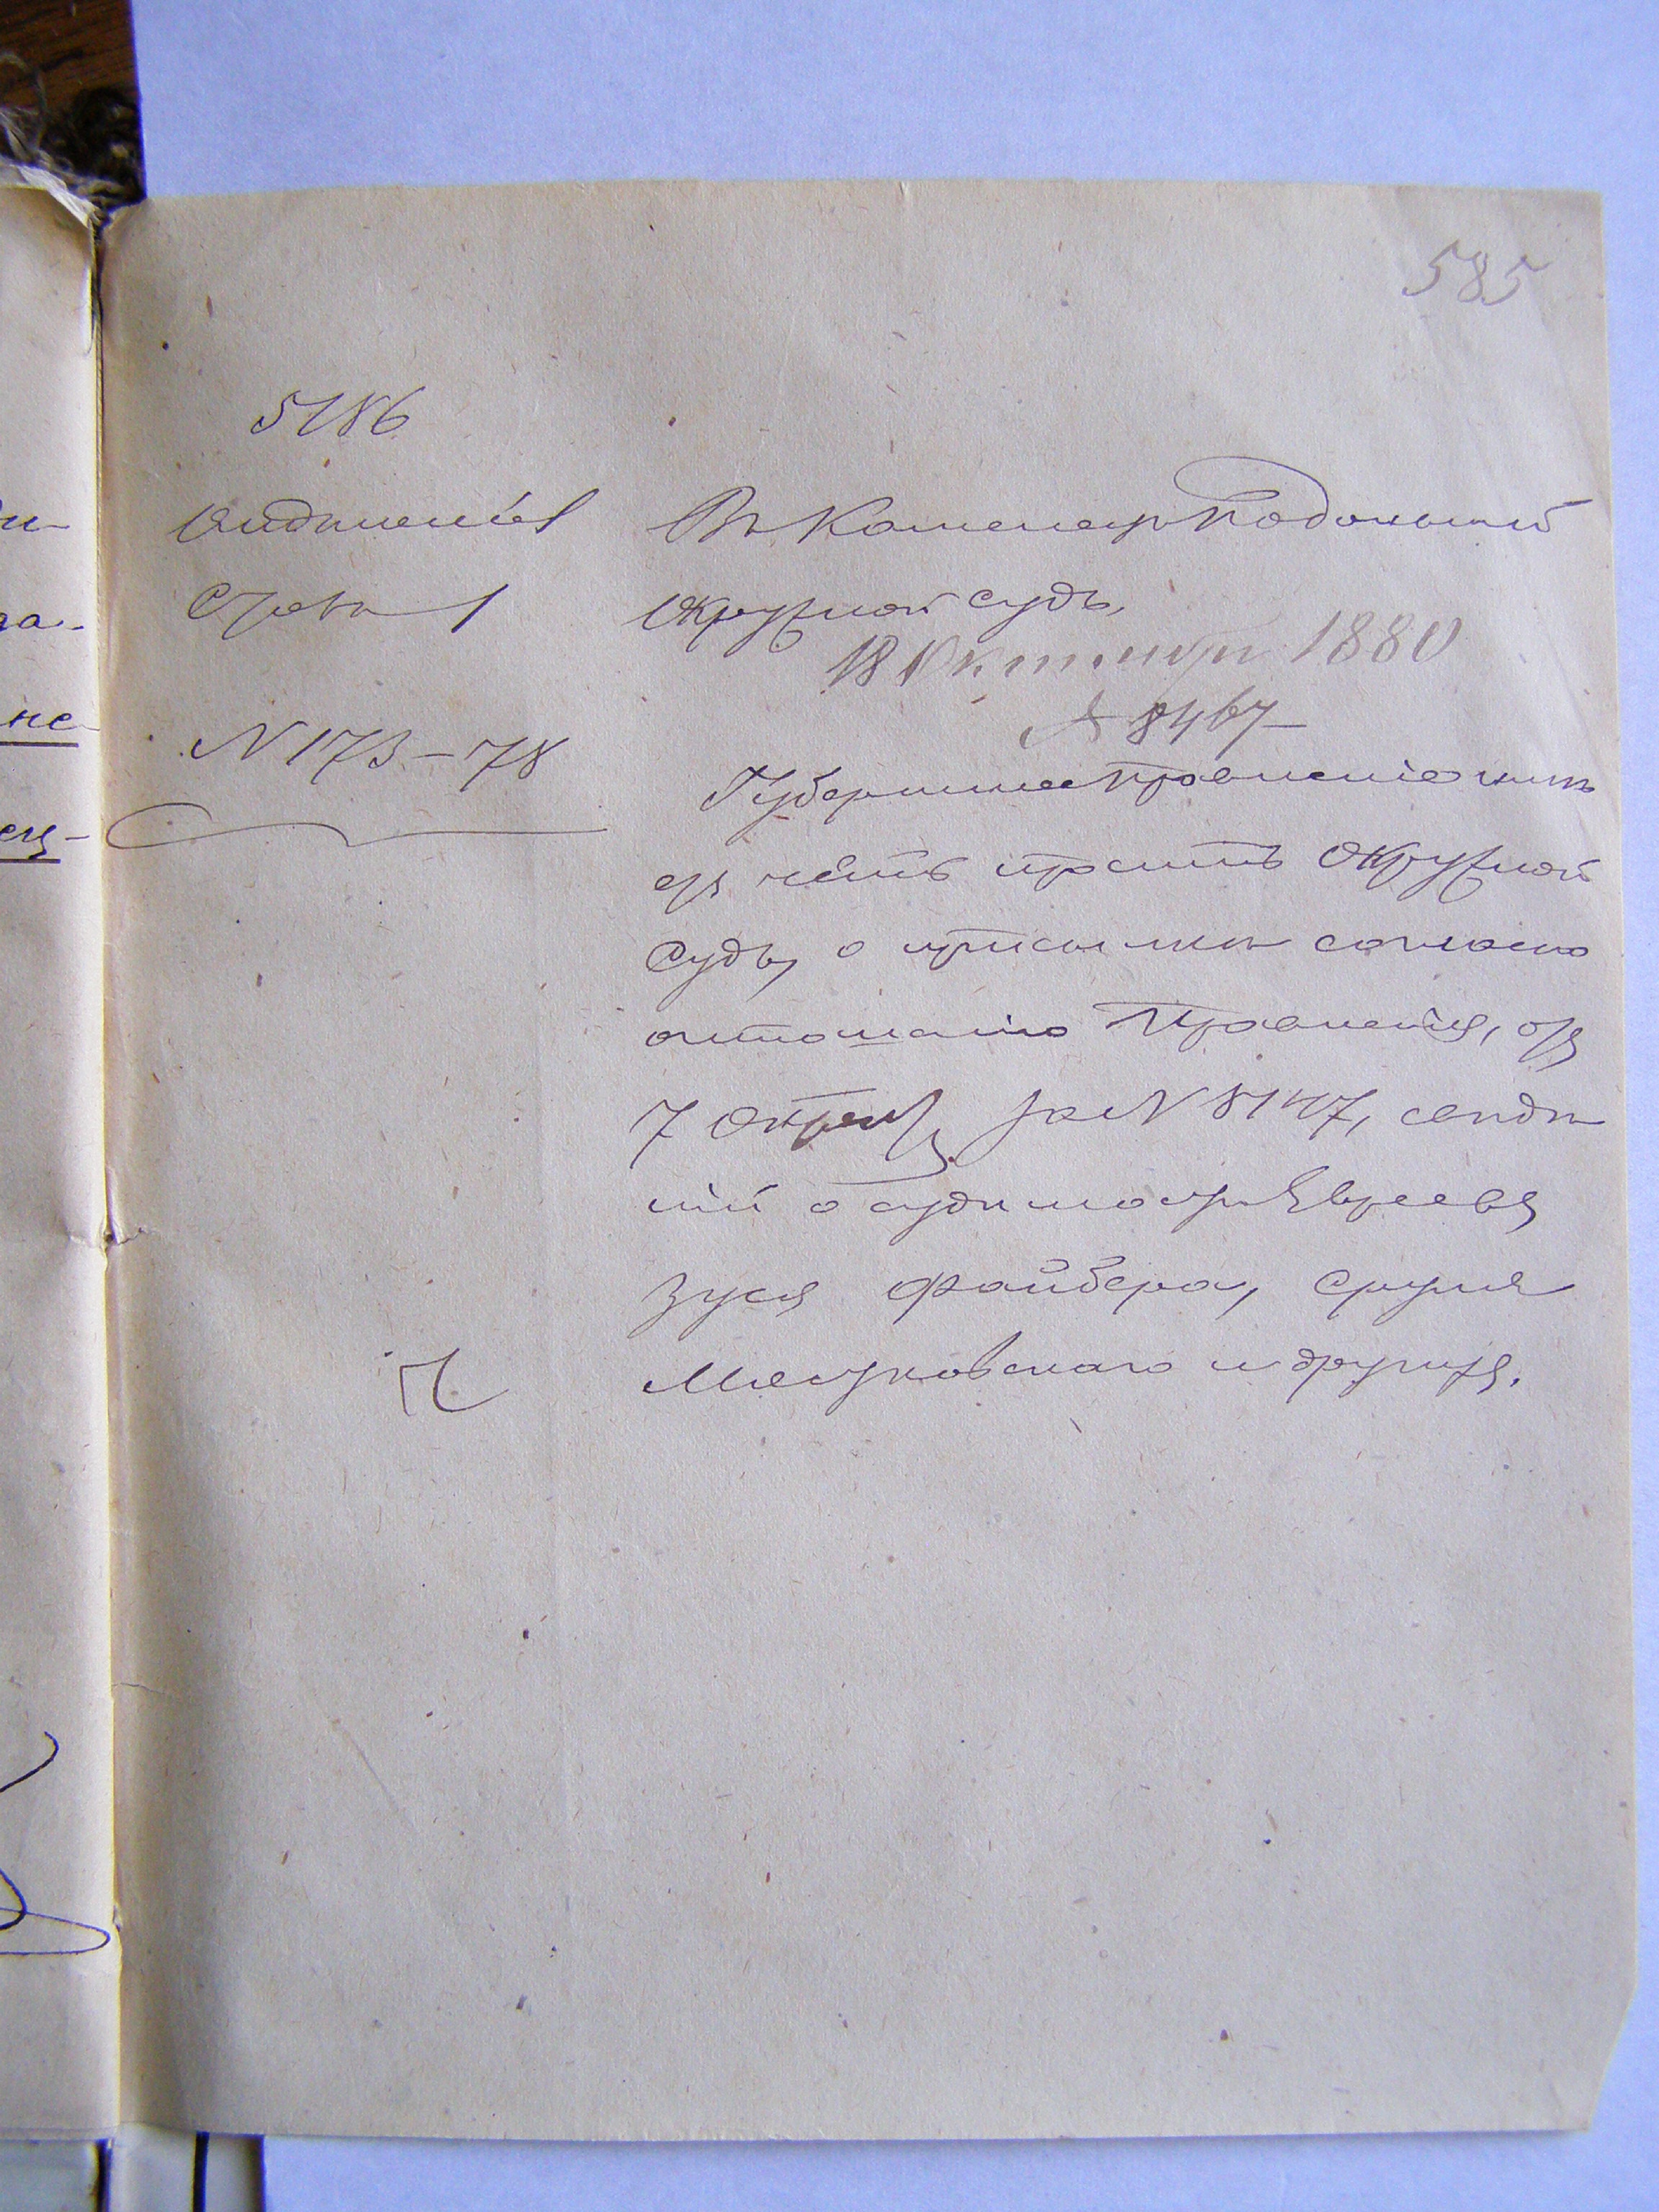 585
5186
Отдѣленіе 1
Столъ 1
N 173–78
Въ Каменецъ Подольскій
Окружной судъ.
18 Октября 1880
№ 8467
Губернское Правленіе имѣ
етъ честь просить Окружной
Судъ, о присылкѣ согласно
отношенію Правленія, отъ
7 Октяб за N 8147, свѣдѣ
ній о судимости Евреевъ
Зуся Файбера, Сруля
Мястковскаго и другихъ.